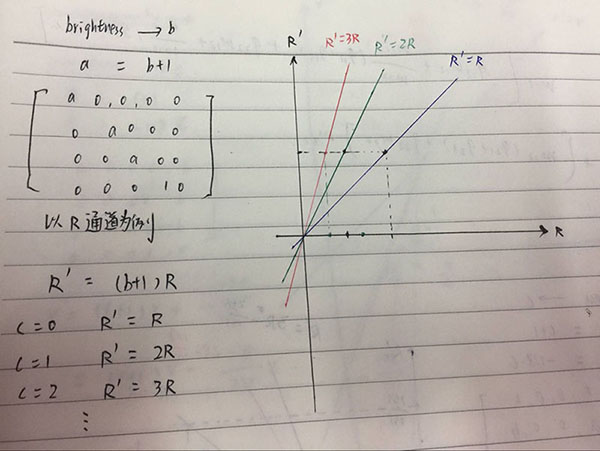 brightness → b
a = b+1
a 0, 0, 0 0
0 a 0 0 0
0 0 a 0 0
0 0 0 1 0
以R通道为例
R' = (b+1)R
c=0 R' = R
c=1 R' = 2R
c=2 R' = 3R
⋮
R'
R'=3R
R'=2R
R'=R
R